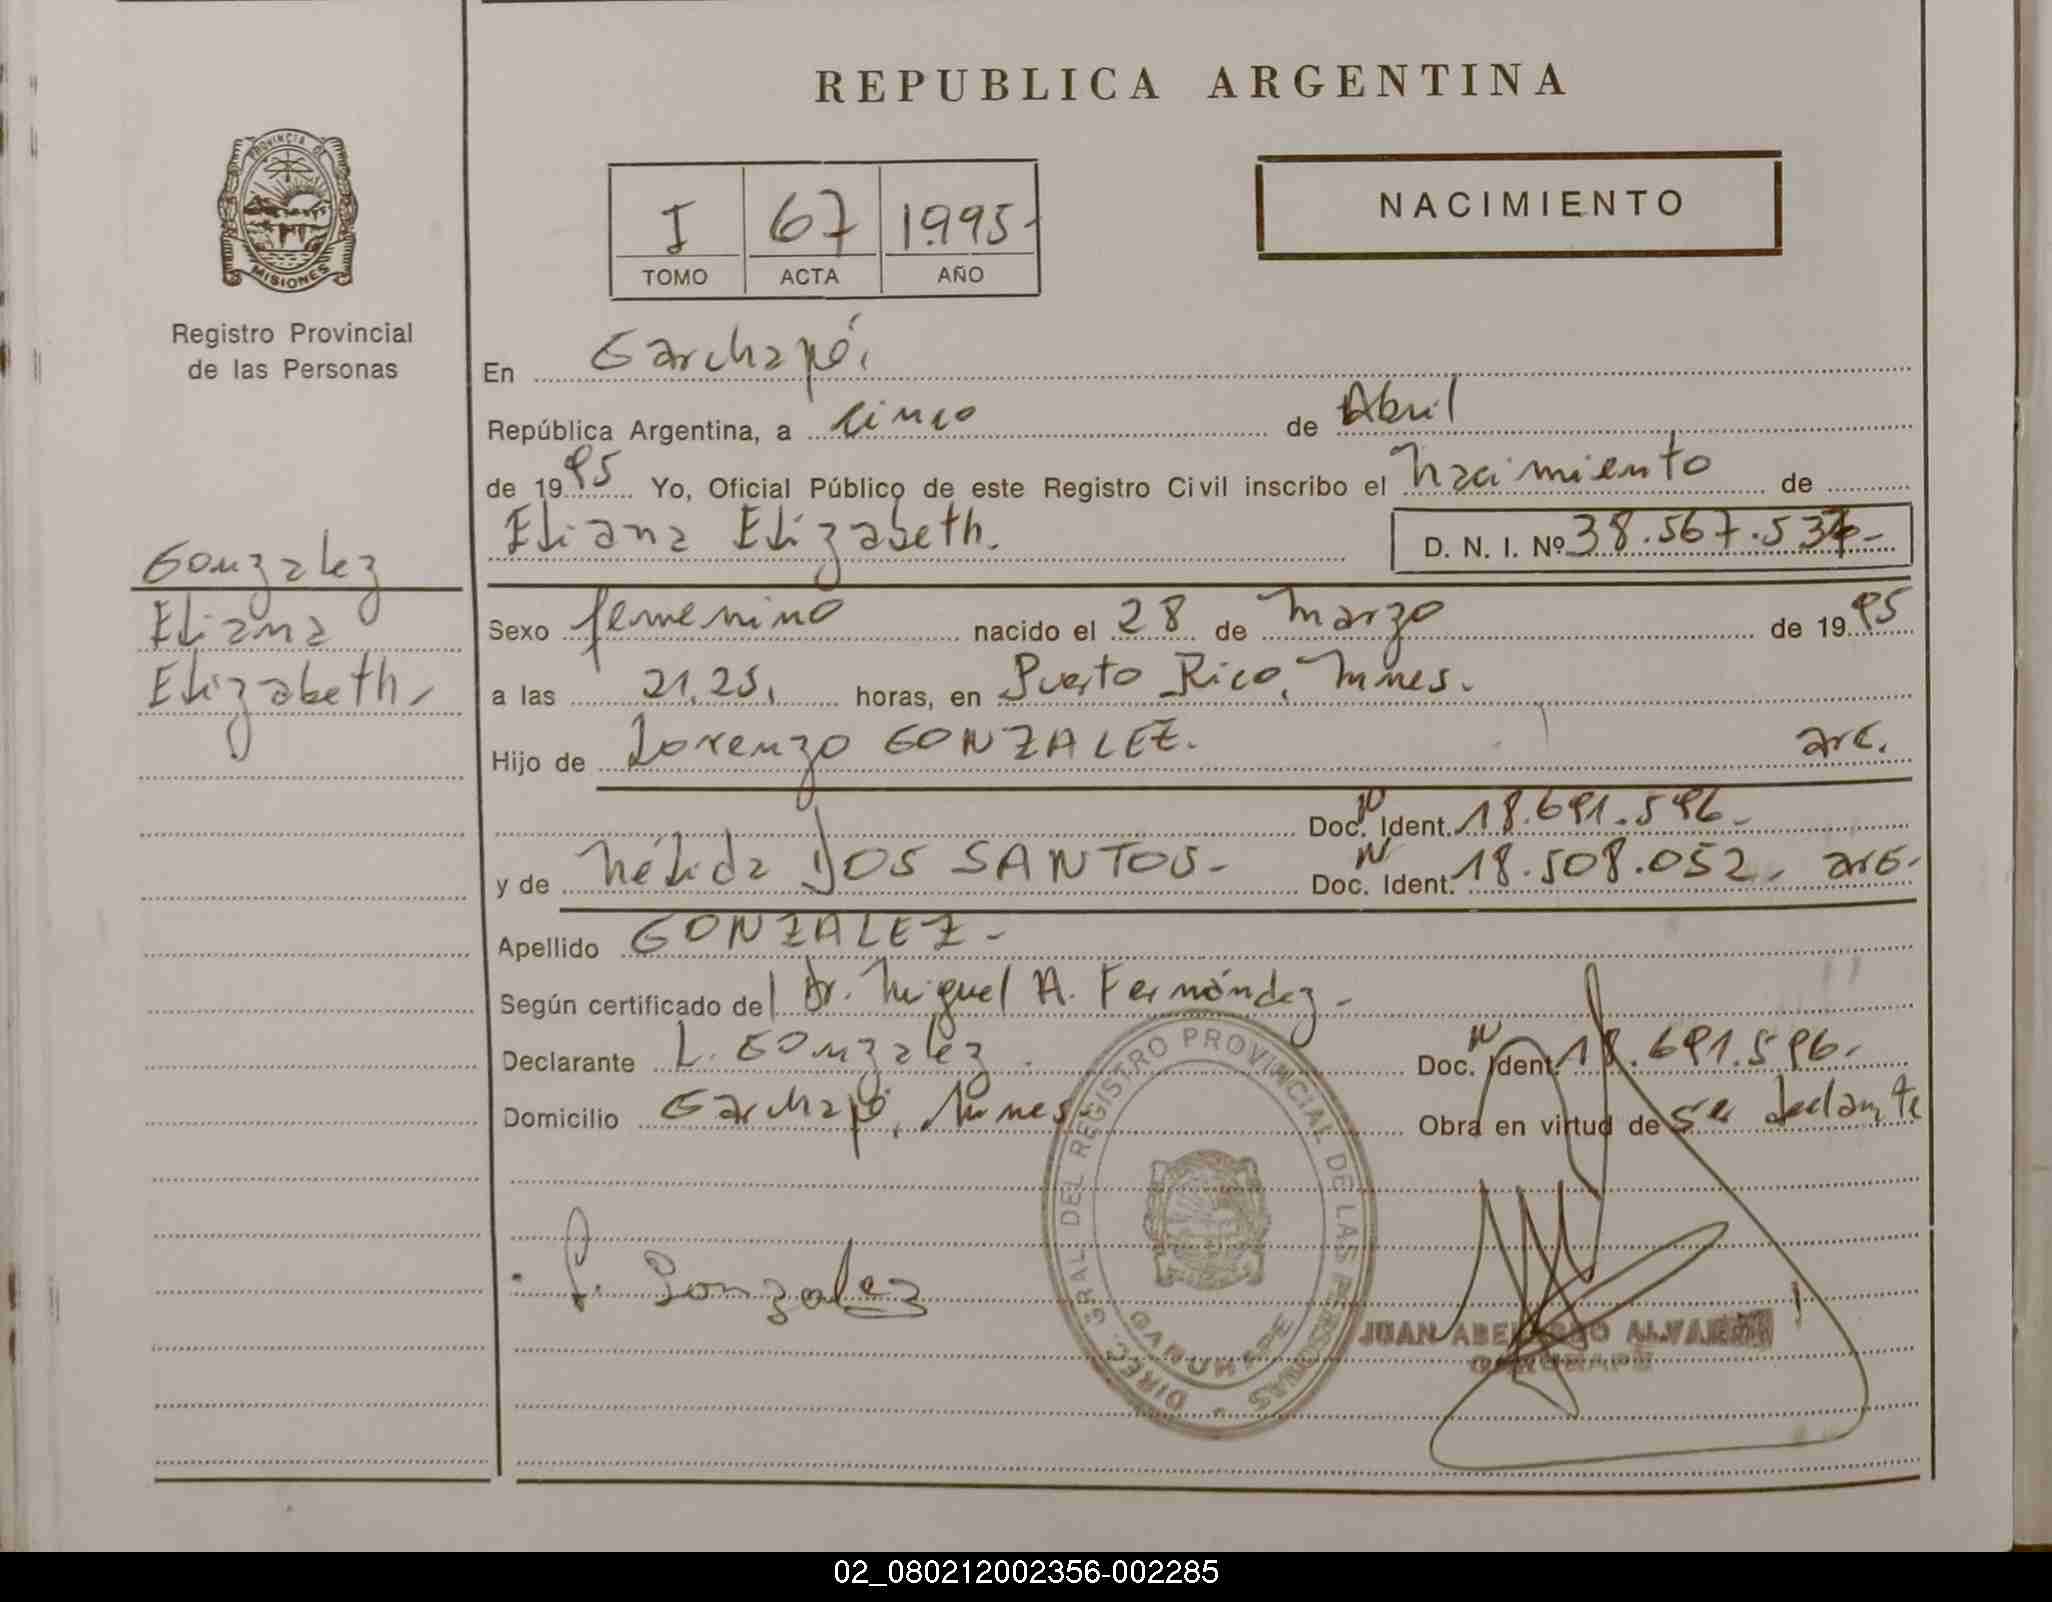 REPUBLICA ARGENTINA
PROVINCIA DE
MISIONES
Registro Provincial
de las Personas
I 67 1995-
TOMO ACTA AÑO
NACIMIENTO
En Garuhapé.
República Argentina, a cinco de Abril
de 1995 Yo, Oficial Público de este Registro Civil inscribo el nacimiento de
Eliana Elizabeth. D. N. I. Nº 38.567.53
Gonzalez
Eliana
Elizabeth.
Sexo femenino nacido el 28 de marzo de 1995
a las 21,25, horas, en Puerto Rico, Mnes.
Hijo de Lorenzo GONZALEZ. arg.
Doc. Ident. 18.691.596.-
y de Nélida DOS SANTOS- Doc. Ident. 18.508.052. arg-
Apellido GONZALEZ-
Según certificado del Dr. Miguel A. Fernández-
Declarante L. Gonzalez. Doc. Ident. 18.691.596.
Domicilio Garuhapé, Mnes. Obra en virtud de ser declarante
DIREC. GRAL DEL REGISTRO PROVINCIAL DE LAS PERSONAS
L. Gonzalez
JUAN ABELARDO ALVAREZ
GARUHAPE
02_080212002356-002285